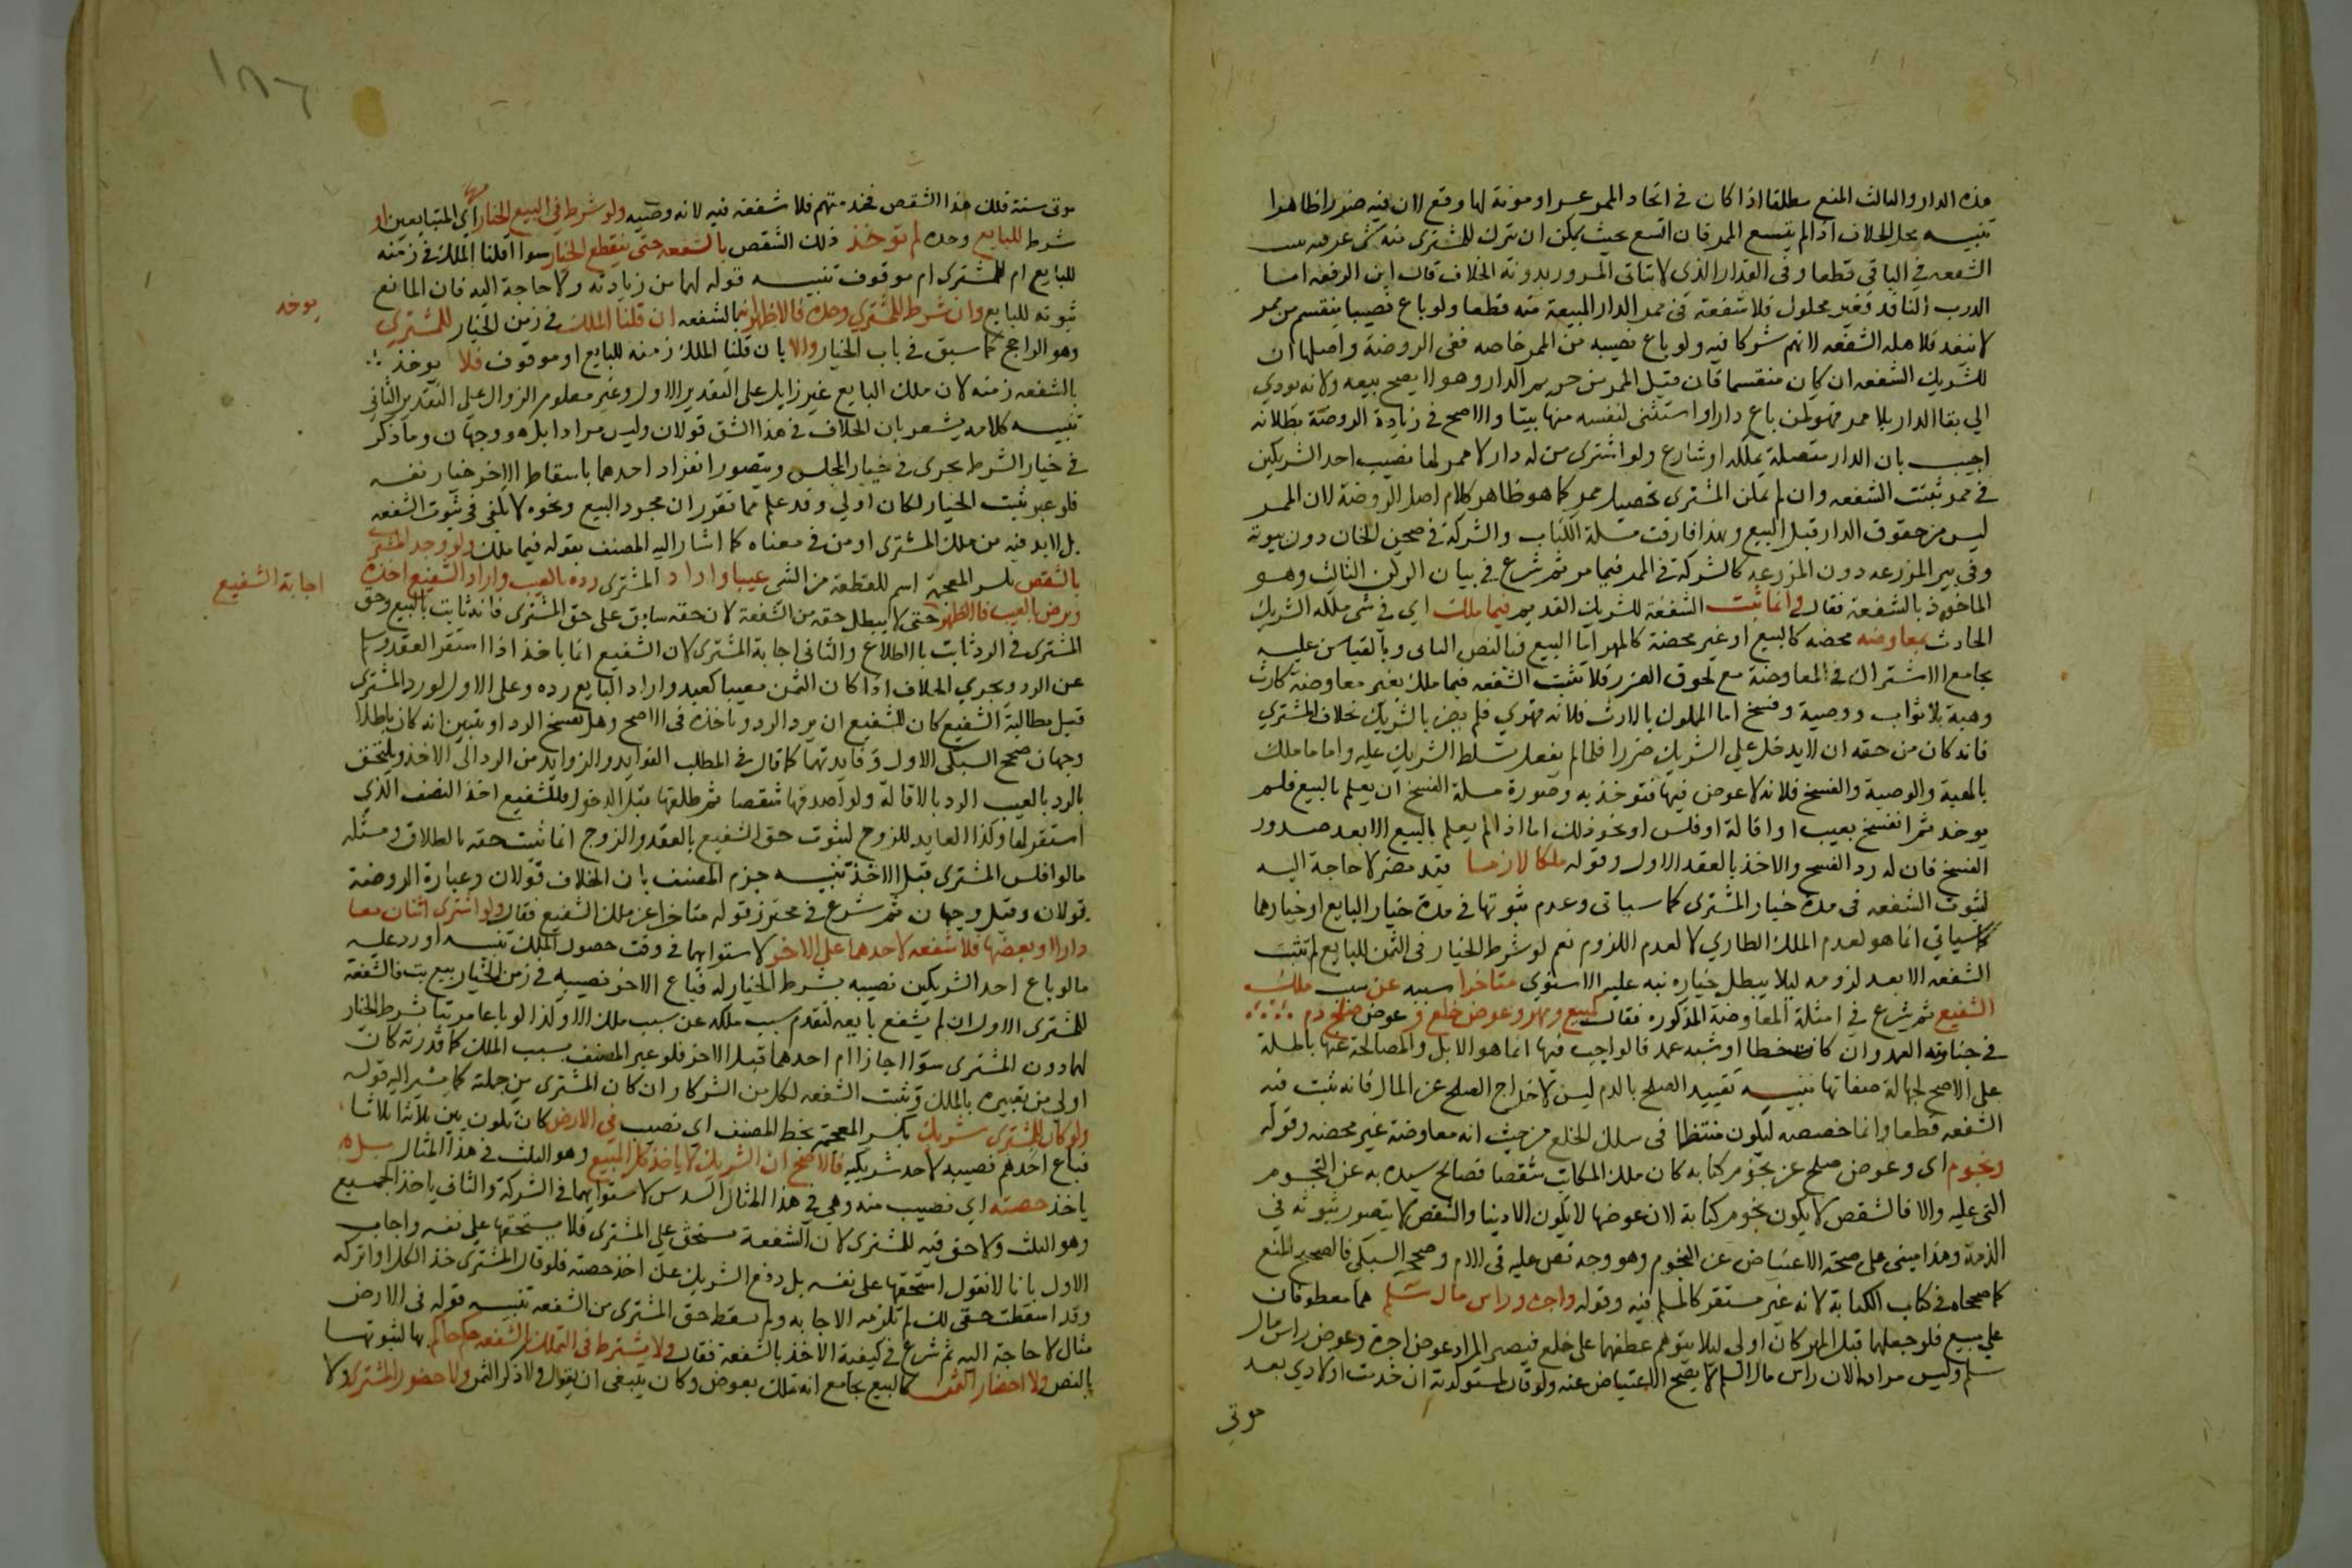 هذه الدار والثالث المنع مطلقا اذا كان في اتخاذ الممر عسر او مونة لها وقع لان فيه ضررا ظاهرا
تنبيه محل الخلاف اذا لم يتسع الممر فان اتسع بحيث يمكن ان يترك للمشتري منه شي يمر فيه ثبتت
الشفعه في الباقي قطعا وفي القدر الذي لا يتاتى المرور بدونه الخلاف قاله ابن الرفعه اما
الدرب النافذ فغير مملوك فلا شفعة في ممر الدار المبيعة منه قطعا ولو باع نصيبا ينقسم من ممر
لا ينفذ فلاهله الشفعه لانهم شركا فيه ولو باع نصيبه من الممر خاصه ففي الروضة واصلها ان
للشريك الشفعه ان كان منقسما فان قيل الممر من حريم الدار وهو لا يصح بيعه ولانه يودي
الي بقا الدار بلا ممر فهو كمن باع دارا واستثنى لنفسه منها بيتا والاصح في زيادة الروضة بطلانه
اجيب بان الدار متصلة بملكه او شارع ولو اشترى من له دار لا ممر لها نصيب احد الشريكين
في ممر ثبتت الشفعه وان لم يمكن المشترى تحصيل ممر كما هو ظاهر كلام اصل الروضة لان الممر
ليس من حقوق الدار قبل البيع وبهذا فارقت مسلة الكتاب والشركة في صحن الخان دون بيوته
وفي بير المزرعه دون المزرعه كالشركة في الممر فيما مر ثم شرع في بيان الركن الثالث وهو
الماخوذ بالشفعة فقال وانما تثبت الشفعة للشريك القديم فيما ملك اي في شي ملكه الشريك
الحادث بمعاوضه محضه كالبيع او غير محضة كالمهر اما البيع فبالنص الباقي وبالقياس عليه
بجامع الاشتراك في المعاوضة مع لحوق الضرر فلا تثبت الشفعه فيما ملك بغير معاوضة كارث
وهبة بلا ثواب ووصية وفسخ اما المملوك بالارث فلانه قهري فلم يضر بالشريك بخلاف المشتري
فانه كان من حقه ان لا يدخل علي الشريك ضررا فلما لم يفعل سلط الشريك عليه واما ما ملك
بالهبة والوصية والفسخ فلانه لا عوض فيها فتوخذ به وصورة مسلة الفسخ ان يعلم بالبيع فلم
يوخذ ثم انفسخ بعيب او اقالة او فلس او نحو ذلك اما اذا لم يعلم بالبيع الا بعد صدور
الفسخ فان له رد الفسخ والاخذ بالعقد الاول وقوله ملكا لازما قيد مضر لا حاجة اليه
لثبوت الشفعه في مدة خيار المشترى كما سياتى وعدم ثبوتها في مدة خيار البايع او خيارهما
كما سياتي انما هو لعدم الملك الطاري لا لعدم اللزوم نعم لو شرط الخيار في الثمن للبايع لم تثبت
الشفعه الا بعد لزومه ليلا يبطل خياره نبه عليه الاسنوى متاخرا سببه عن سبب ملك
الشفيع ثم شرع في امثلة المعاوضة المذكوره فقال كمبيع ومهر وعوض خلع وعوض صلح دم
في جنايته العمد وان كانت خطا او شبه عمد فالواجب فيها انما هو الابل والمصالحة عنها باطلة
على الاصح لجهالة صفاتها تنبيه تقييد الصلح بالدم ليس لاخراج الصلح عن المال فانه تثبت فيه
الشفعه قطعا وانما خصصه ليكون منتظما في سلك الخلع من حيث انه معاوضة غير محضه وقوله
ونجوم اى وعوض صلح عن نجوم كتابه كان ملك المكاتب شقصا فصالح سيده به عن النجوم
التي عليه والا فالشقص لا يكون نجوم كتابة لان عوضها لا يكون الا دينا والشقص لا يتصور ثبوته في
الذمة وهذا مبنى على صحة الاعتياض عن النجوم وهو وجه نص عليه في الام وصححه السبكى فالصحيح المنع
كما صححاه في كتاب الكتابة لانه غير مستقر كالمسلم فيه وقوله واجرة وراس مال سلم هما معطوفان
على مبيع فلو جعلهما قبل المهر كان اولى ليلا يتوهم عطفهما على خلع فيصير المراد عوض اجرة وعوض راس مال
سلم وليس مرادا لان راس مال السلم لا يصح الاعتياض عنه ولو قال لمستولدته ان خدمت اولادي بعد
موتي
١٨٦
موتى سنة فلك هذا الشقص فخدمتهم فلا شفعه فيه لانه وصيه ولو شرط في البيع الخيار لهما اي المتبايعين او
شرط للبايع وحده لم توخذ ذلك الشقص بالشفعه حتى ينقطع الخيار سوا اقلنا الملك في زمنه
للبايع ام للمشترى ام موقوف تنبيه قوله لهما من زيادته ولا حاجة اليه فان المانع
ثبوته للبايع وان شرط للمشتري وحده فالاظهر انه بالشفعه ان قلنا الملك في زمن الخيار للمشتري
يوخذ
وهو الراجح كما سبق في باب الخيار والا بان قلنا الملك زمنه للبايع او موقوف فلا يوخذ
بالشفعه زمنه لان ملك البايع غير زايل على التقدير الاول وغير معلوم الزوال على التقدير الثاني
تنبيه كلامه يشعر بان الخلاف في هذا الشق قولان وليس مرادا بل هو وجهان وما ذكر
في خيار الشرط يجرى في خيار المجلس ويتصور انفراد احدهما باسقاط الاخر خيار نفسه
فلو عبر بثبت الخيار لكان اولي وقد علم مما تقرر ان مجرد البيع ونحوه لا يكفي في ثبوت الشفعه
بل لا بد فيه من ملك المشترى او من في معناه كما اشار اليه المصنف بقوله فيما ملك ولو وجد المشتري
بالشقص بكسر المعجمة اسم للقطعة من الشي عيبا واراد المشترى رده بالعيب واراد الشفيع اخذه
اجابة الشفيع
ويرضى بالعيب فالاظهر حتى لا يبطل حقه من الشفعة لان حقه سابق على حق المشترى فانه ثابت بالبيع وحق
المشترى في الرد ثابت بالاطلاع والثاني اجابة المشترى لان الشفيع انما ياخذ اذا استقر العقد وسلم
عن الرد ويجري الخلاف اذا كان الثمن معيبا كعبد واراد البايع رده وعلى الاول لو رد المشترى
قبل مطالبة الشفيع كان للشفيع ان يرد الرد وياخذه في الاصح وهل يفسخ الرد او يتبين انه كان باطلا
وجهان صحح السبكى الاول وفايدتهما كما قال في المطلب الفوايد والزوايد من الرد الى الاخذ ويلتحق
بالرد بالعيب الرد بالاقالة ولو اصدقها شقصا ثم طلقها قبل الدخول فللشفيع اخذ النصف الذي
استقر لها وكذا العايد للزوج لثبوت حق الشفيع بالعقد والزوج انما ثبت حقه بالطلاق ومثله
ما لو افلس المشترى قبل الاخذ تنبيه جزم المصنف بان الخلاف قولان وعبارة الروضة
قولان وقيل وجهان ثم شرع في محترز قوله متاخرا عن ملك الشفيع فقال ولو اشترى اثنان معا
دارا او بعضها فلا شفعه لاحدهما على الاخر لاستوايهما في وقت حصول الملك تنبيه اورد عليه
ما لو باع احد الشريكين نصيبه بشرط الخيار له فباع الاخر نصيبه في زمن الخيار بيع بت فالشفعة
للمشترى الاول ان لم يشفع بايعه لتقدم سبب ملكه عن سبب ملك الاول وكذا لو باعا مرتبا بشرط الخيار
لهما دون المشترى سوا اجازا ام احدهما قبل الاخر فلو عبر المصنف بسبب الملك كما قدرته كان
اولي من تعبيره بالملك وتثبت الشفعه لكل من الشركا وان كان المشترى من جملته كما يشير اليه قوله
ولو كان للمشترى شريك بكسر المعجمة بخط المصنف اى نصيب في الارض كان تكون بين ثلاثة اثلاثا
فباع احدهم نصيبه لاحد شريكيه فالاصح ان الشريك لا ياخذ كل المبيع وهو الثلث في هذا المثال بل
ياخذ حصته اي نصيب منه وهي في هذا المثال السدس لاستوايهما في الشركة والثاني ياخذ الجميع
وهو الثلث ولا حق فيه للمشترى لان الشفعة تستحق على المشترى فلا يستحقها على نفسه واجاب
الاول بانا لا نقول استحقها على نفسه بل دفع الشريك عن اخذ حصته فلو قال المشترى خذ الكل او اتركه
وقد اسقطت حقى لك لم تلزمه الاجابه ولم يسقط حق المشترى من الشفعه تنبيه قوله في الارض
مثال لا حاجة اليه ثم شرع في كيفية الاخذ بالشفعة فقال ولا يشترط في التملك بالشفعه حكم حاكم بها لثبوتها
بالنص ولا احضار الثمن كالبيع بجامع انه تملك بعوض وكان ينبغى ان يقول ولا ذكر الثمن ولا حضور المشترى ولا